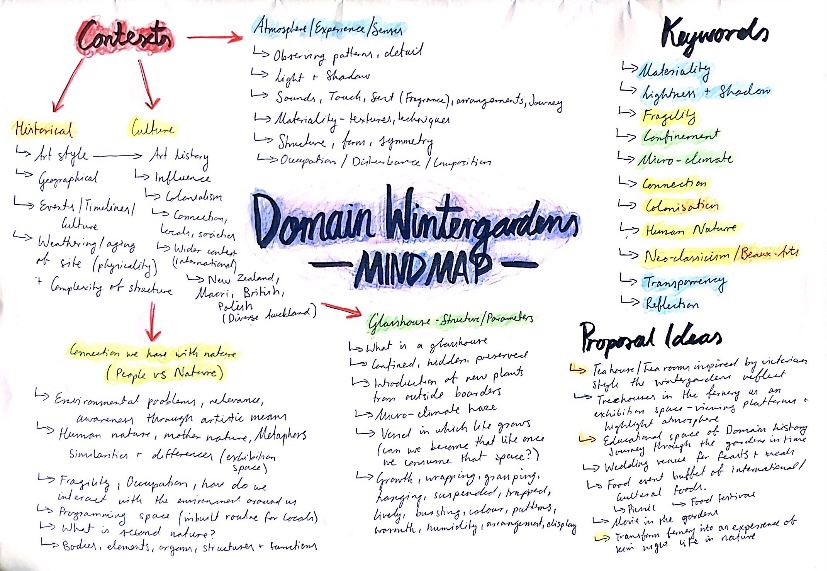 Contexts
Atmosphere/Experience/Senses
Observing patterns, detail
Light + Shadow
Sounds, Touch, Sent (Fragrance), arrangements, Journey
Materiality - textures, techniques
Structure, form, symmetry
Occupation / Disturbance / Composition
Historical
Art style
Geographical
Events/Timelines/
Culture
Weathering/aging
of site (physicality)
+ Complexity of structure
Culture
Art history
Influence
Colonialism
Connection,
locals, societies
Wider context
(international)
New Zealand,
Maori, British,
Polish
(Diverse Auckland)
Domain Wintergardens
— MINDMAP —
Connection we have with nature
(People vs Nature)
Environmental problems, relevance,
awareness through artistic means
Human nature, mother nature, Metaphors
Similarities + differences (exhibition
space)
Fragility, Occupation, how do we
interact with the environment around us
Programming space (inbuilt routine for locals)
What is second nature?
Bodies, elements, organs, structures + functions
Glasshouse - Structure/Parameters
What is a glasshouse
Confined, hidden, preserved
Introduction of new plants
from outside boarders
Micro-climate haze
Vessel in which life grows
(can we become that life once
we consume that space?)
Growth, wrapping, grasping,
hanging, suspended, trapped,
lively, bursting, colour, patterns,
warmth, humidity, arrangement, display
Keywords
Materiality
Lightness + Shadow
Fragility
Confinement
Micro-climate
Connection
Colonisation
Human Nature
Neo-classicism/Beaux-Arts
Transparency
Reflection
Proposal Ideas
Teahouse/Tea rooms inspired by victorian
style the wintergardens reflect
Treehouses in the fernery as an
exhibition space - viewing platforms +
highlight atmosphere
Educational space of Domain history
Journey through the gardens in time
Wedding venue for feasts + meals
Food event buffet of international/
cultural foods.
Picnic
Food festival
Movie in the gardens
Transform fernery into an experience of
night life in nature